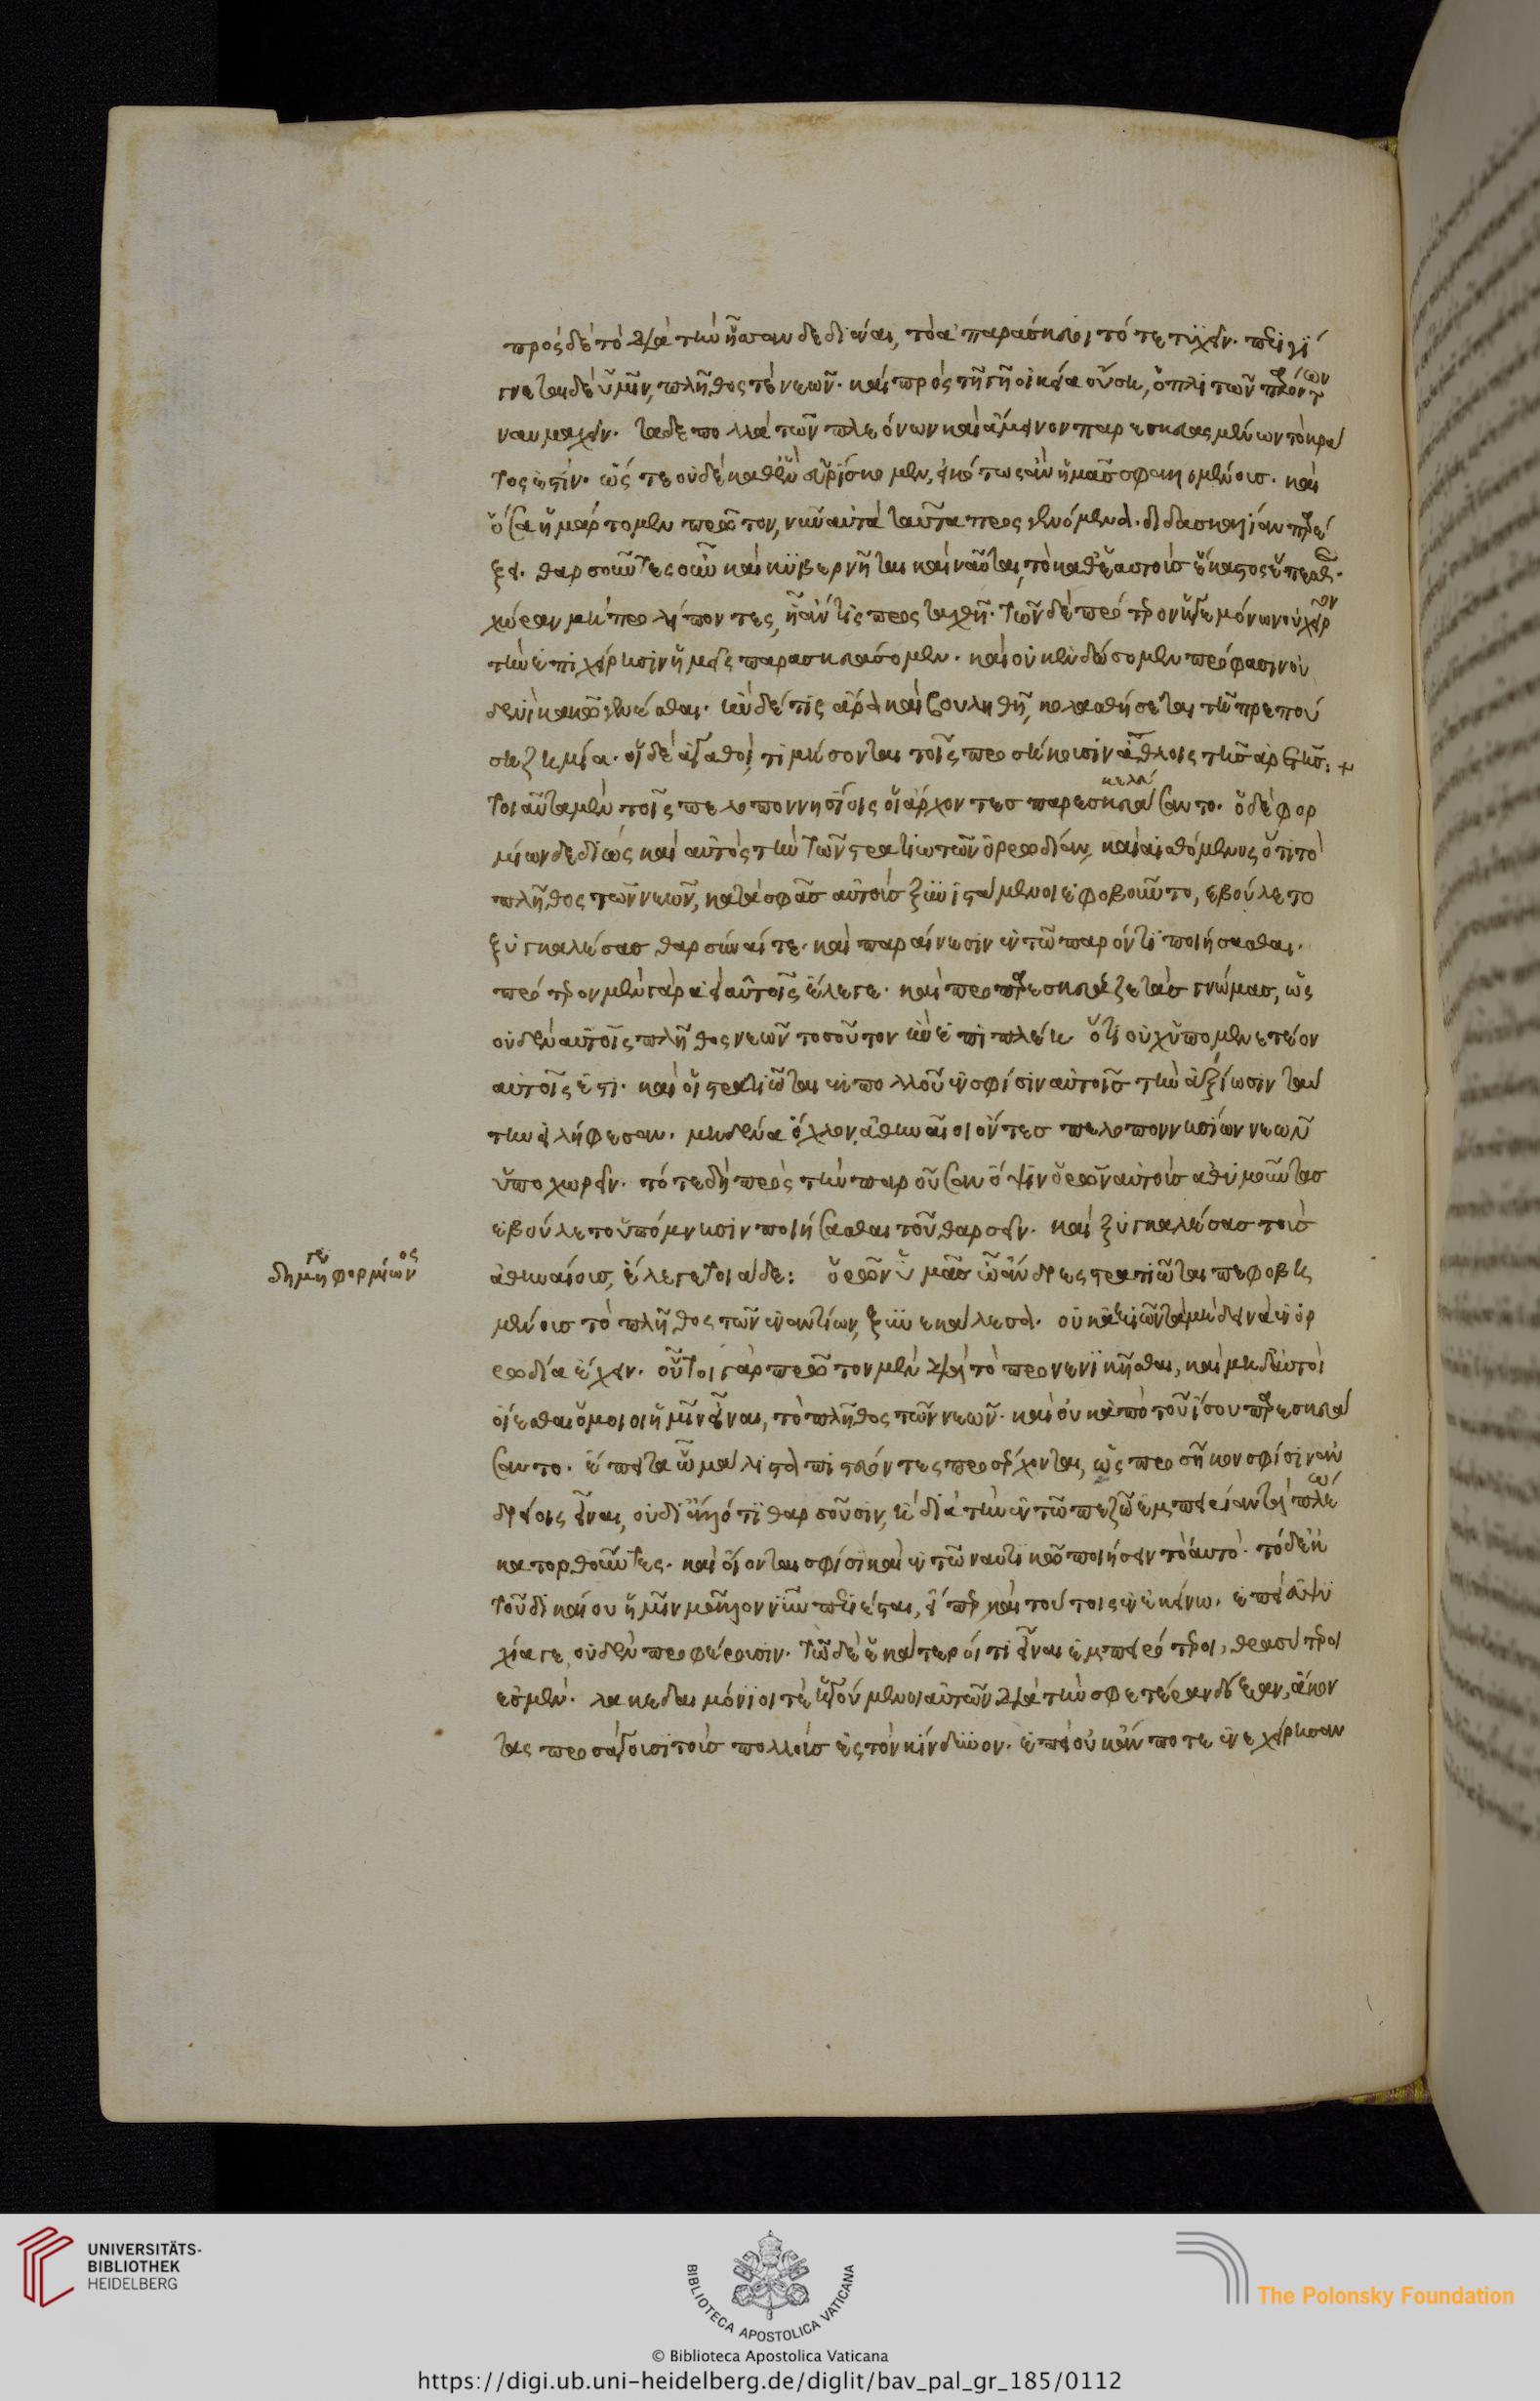 πρὸς δὲ τὸ διὰ τὴν ἧσσαν δεδιέναι, τὸ ἀπαράσκευοι τότε τυχεῖν. περιγί
γνεται δὲ ὑμῖν, πλῆθός τε νεῶν. καὶ πρὸς τῇ γῇ οἰκεία οὔσῃ, ὁπλιτῶν παρόντων
ναυμαχεῖν. τὰ δὲ πολλὰ τῶν πλεόνων καὶ ἄμεινον παρεσκευασμένων τὸ κρά
τος ἐστίν. ὥστε οὐδὲ καθ' ἓν εὑρίσκομεν, εἰκότως ἂν ἡμᾶς σφαλλομένους. καὶ
ὅσα ἡμάρτομεν πρῶτον, νῦν αὐτὰ ταῦτα προσγενόμενα διδασκαλίαν παρέ
ξει. θαρσοῦντες οὖν καὶ κυβερνῆται καὶ ναῦται, τὸ καθ' ἑαυτοὺς ἕκαστος ἕπεσθε.
χώραν μὴ προλείποντες, ᾗ ἄν τις προσταχθῇ. τῶν δὲ πρότερον ἡγεμόνων οὐ χεῖρον
τὴν ἐπιχείρησιν ἡμεῖς παρασκευάσομεν. καὶ οὐκ ἐνδώσομεν πρόφασιν οὐ
δενὶ κακῷ γενέσθαι. ἢν δέ τις ἄρα καὶ βουληθῇ, κολασθήσεται τῇ πρεπού
σῃ ζημίᾳ. οἱ δὲ ἀγαθοὶ, τιμήσονται τοῖς προσήκουσιν ἄθλοις τῆς ἀρετῆς: +
τοιαῦτα μὲν τοῖς πελοποννησίοις οἱ ἄρχοντες παρεσκευάσαντο. ὁ δὲ φορ
μίων δεδιὼς καὶ αὐτὸς τὴν τῶν στρατιωτῶν ὀρρωδίαν, καὶ αἰσθόμενος ὅτι τὸ
πλῆθος τῶν νεῶν, κατὰ σφᾶς αὐτοὺς ξυνιστάμενοι ἐφοβοῦντο, ἐβούλετο
ξυγκαλέσας θαρσῦναί τε. καὶ παραίνεσιν ἐν τῷ παρόντι ποιήσασθαι.
πρότερον μὲν γὰρ ἀεὶ αὐτοῖς ἔλεγε. καὶ προπαρεσκεύαζε τὰς γνώμας, ὡς
οὐδὲν αὐτοῖς πλῆθος νεῶν τοσοῦτον ἢν ἐπιπλέῃ ὅτι οὐχ ὑπομενετέον
αὐτοῖς ἐστι. καὶ οἱ στρατιῶται ἐκ πολλοῦ ἐν σφίσιν αὐτοῖς τὴν ἀξίωσιν ταύ
την εἰλήφεσαν. μηδένα ὄχλον ἀθηναῖοι ὄντες πελοποννησίων νεῶν
ὑποχωρεῖν. τότε δὴ πρὸς τὴν παροῦσαν ὄψιν ὁρῶν αὐτοὺς ἀθυμοῦντας
ἐβούλετο ὑπόμνησιν ποιήσασθαι τοῦ θαρσεῖν. καὶ ξυγκαλέσας τοὺς
δημηγορία φορμίωνος
ἀθηναίους, ἔλεγε τοιάδε: ὁρῶν ὑμᾶς ὦ ἄνδρες στρατιῶται πεφοβη
μένους τὸ πλῆθος τῶν ἐναντίων, ξυνεκάλεσα. οὐκ ἀξιῶν τὰ μὴ δεινὰ ἐν ὀρ
ρωδίᾳ ἔχειν. οὗτοι γὰρ πρῶτον μὲν διὰ τὸ προνενικῆσθαι, καὶ μηδ' αὐτοὶ
οἴεσθαι ὅμοιοι ἡμῖν εἶναι, τὸ πλῆθος τῶν νεῶν. καὶ οὐκ ἀπὸ τοῦ ἴσου παρεσκευά
σαντο. ἔπειτα ᾧ μάλιστα πιστεύοντες προσέρχονται, ὡς προσῆκον σφίσιν ἀν
δρείοις εἶναι, οὐ δι' ἄλλό τι θαρσοῦσιν, ἢ διὰ τὴν ἐν τῷ πεζῷ ἐμπειρίαν τὰ πλείω
κατορθοῦντες. καὶ οἴονται σφίσι καὶ ἐν τῷ ναυτικῷ ποιήσειν τὸ αὐτό. τὸ δ' ἐκ
τοῦ δικαίου ἡμῖν μᾶλλον νῦν περιέσται, εἴπερ καὶ τούτοις ἐν ἐκείνῳ. ἐπεὶ εὐψυ
χίᾳ γε, οὐδὲν προφέρουσιν. τῷ δὲ ἑκάτεροί τι εἶναι ἐμπειρότεροι, θρασύτεροι
ἐσμέν. λακεδαιμόνιοί τε ἡγούμενοι αὐτῶν διὰ τὴν σφετέραν δόξαν, ἄκον
τας προσάγουσι τοὺς πολλοὺς ἐς τὸν κίνδυνον. ἐπεὶ οὐκ ἄν ποτε ἐνεχείρησαν
UNIVERSITÄTS-
BIBLIOTHEK
HEIDELBERG
BIBLIOTECA APOSTOLICA VATICANA
The Polonsky Foundation
© Biblioteca Apostolica Vaticana
https://digi.ub.uni-heidelberg.de/diglit/bav_pal_gr_185/0112